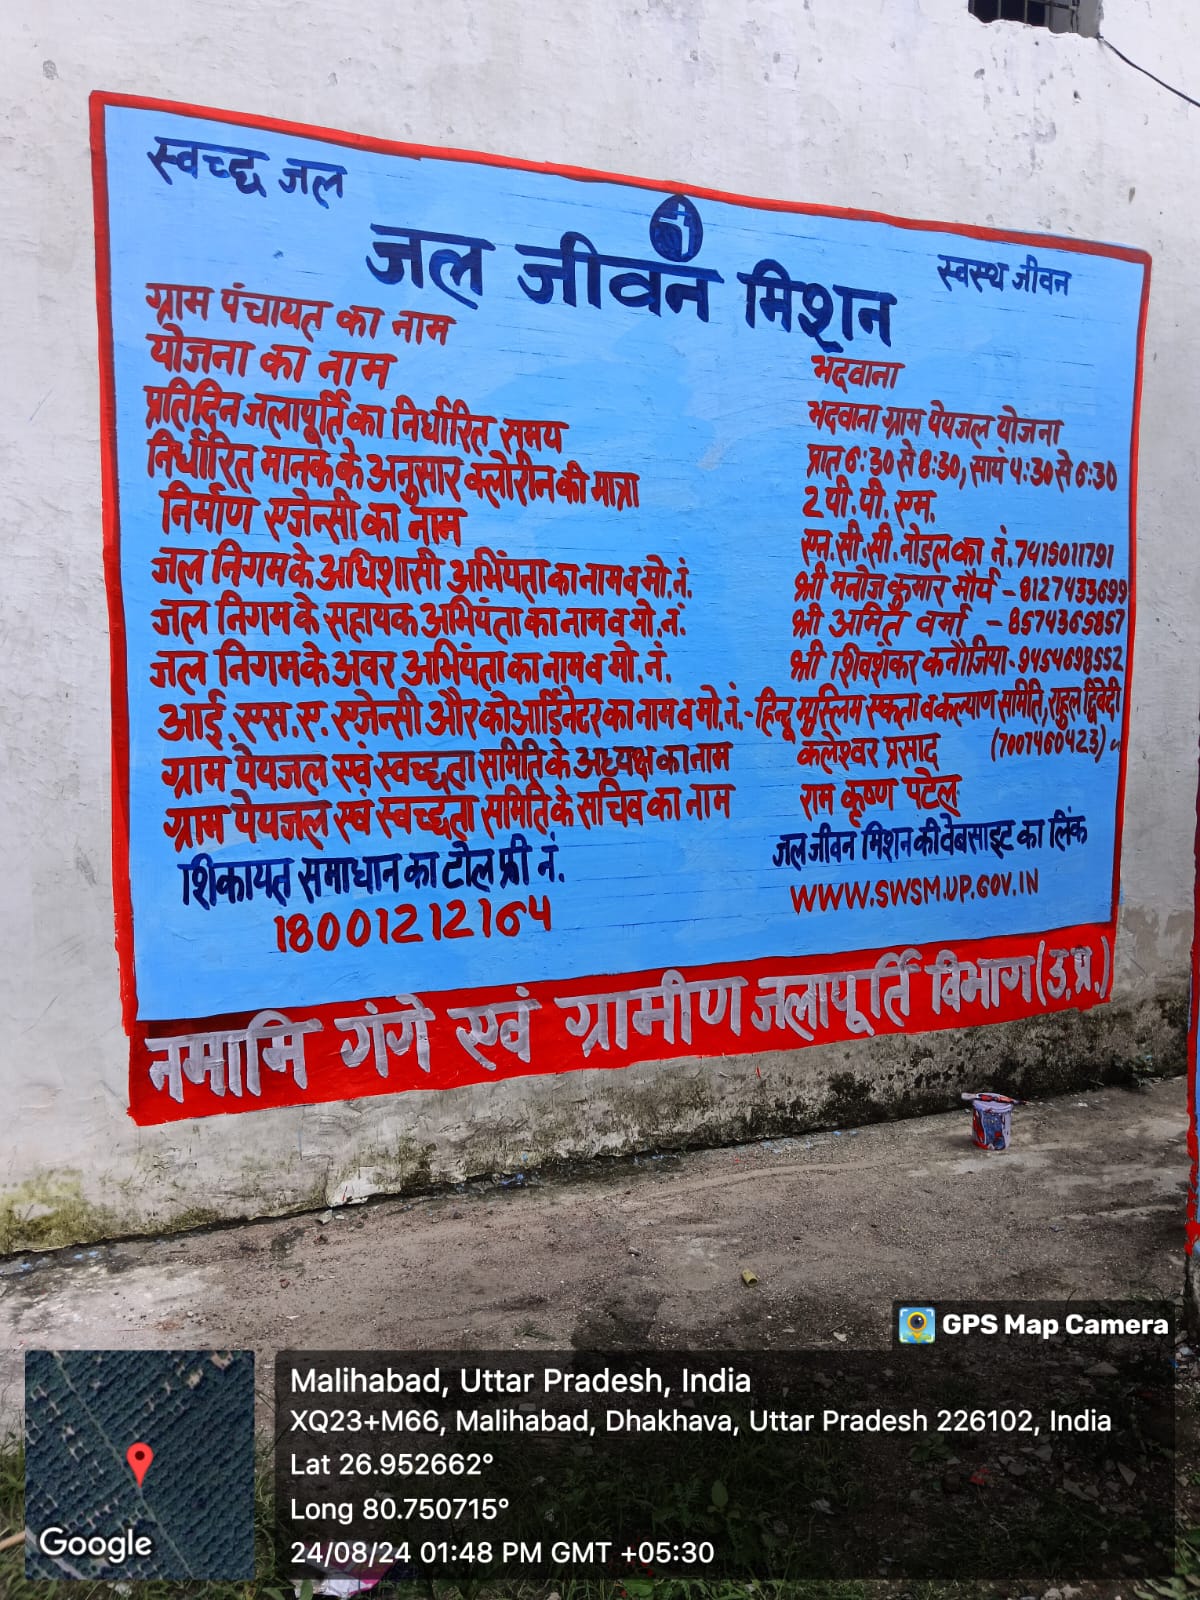 स्वच्छ जल
जल जीवन मिशन
स्वस्थ जीवन
ग्राम पंचायत का नाम भदवाना
योजना का नाम भदवाना ग्राम पेयजल योजना
प्रतिदिन जलापूर्ति का निर्धारित समय प्रात 6:30 से 8:30, सायं 4:30 से 6:30
निर्धारित मानक के अनुसार क्लोरीन की मात्रा 2 पी. पी. एम.
निर्माण एजेन्सी का नाम एन. सी. सी. नोडल का नं. 7415011791
जल निगम के अधिशासी अभियंता का नाम व मो. नं. श्री मनोज कुमार मौर्य - 8127433699
जल निगम के सहायक अभियंता का नाम व मो. नं. श्री अमित वर्मा - 8574365857
जल निगम के अवर अभियंता का नाम व मो. नं. श्री शिवशंकर कनौजिया - 9454698552
आई. एस. ए. एजेन्सी और कोआर्डिनेटर का नाम व मो. नं. - हिन्दू मुस्लिम एकता व कल्याण समिति, राहुल द्विवेदी
(7007460423)
ग्राम पेयजल एवं स्वच्छता समिति के अध्यक्ष का नाम कलेश्वर प्रसाद
ग्राम पेयजल एवं स्वच्छता समिति के सचिव का नाम राम कृष्ण पटेल
शिकायत समाधान का टोल फ्री नं. जल जीवन मिशन की वेबसाइट का लिंक
18001212164 WWW.SWSM.UP.GOV.IN
नमामि गंगे एवं ग्रामीण जलापूर्ति विभाग (उ.प्र.)
GPS Map Camera
Malihabad, Uttar Pradesh, India
XQ23+M66, Malihabad, Dhakhava, Uttar Pradesh 226102, India
Lat 26.952662°
Long 80.750715°
24/08/24 01:48 PM GMT +05:30
Google